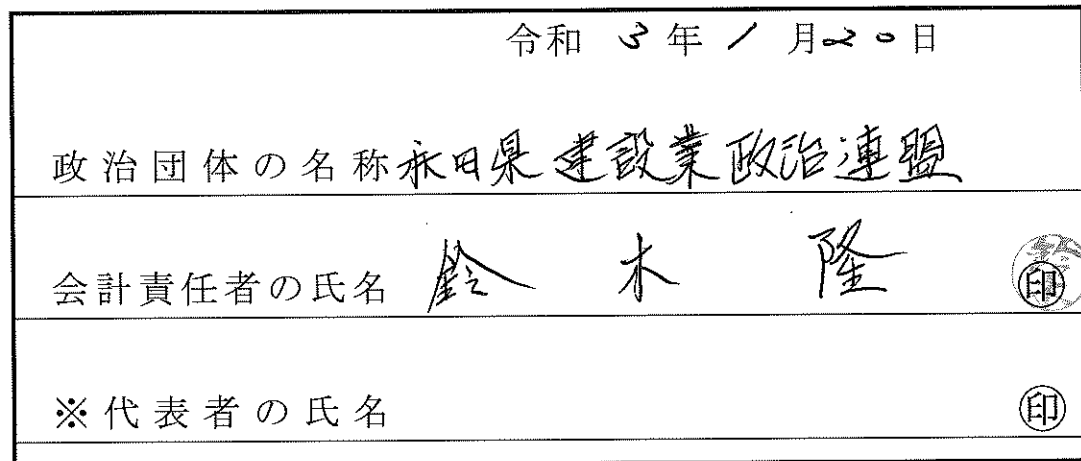 令和 3 年 1 月 20 日
政治団体の名称 秋田県建設業政治連盟
会計責任者の氏名 鈴木 隆 印
※代表者の氏名 印